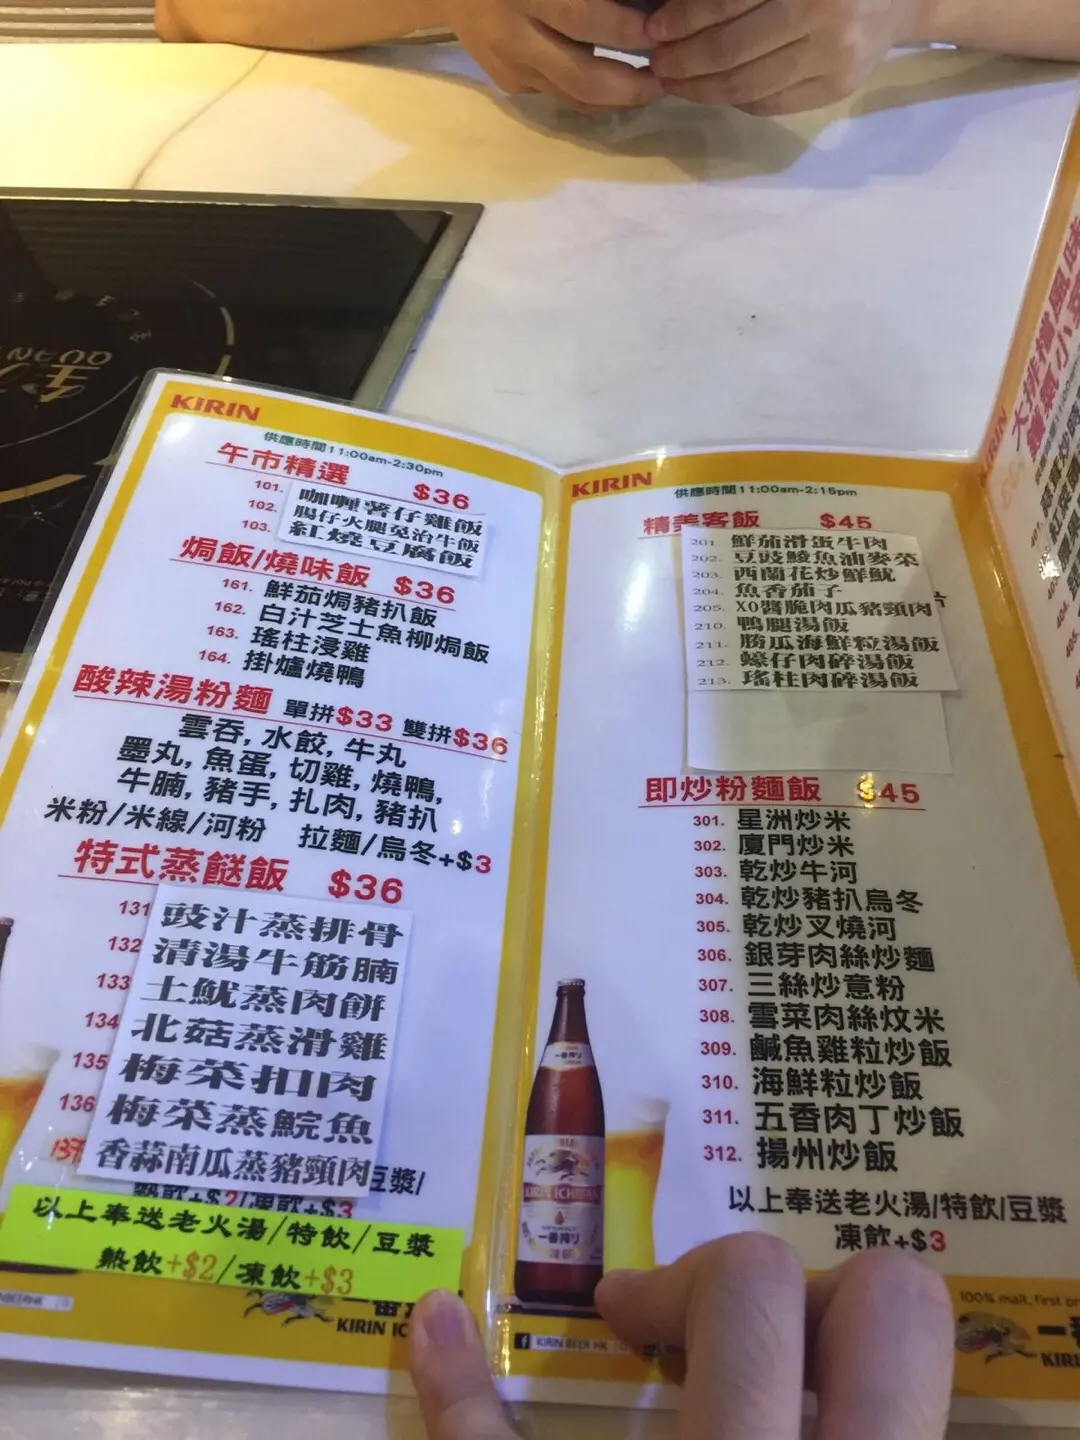 KIRIN
供應時間11:00am-2:30pm
午市精選 $36
101. 咖喱薯仔雞飯
102. 腸仔火腿免治牛飯
103. 紅燒豆腐飯
焗飯/燒味飯 $36
161. 鮮茄焗豬扒飯
162. 白汁芝士魚柳焗飯
163. 瑤柱浸雞
164. 掛爐燒鴨
酸辣湯粉麵 單拼$33 雙拼$36
雲吞, 水餃, 牛丸
墨丸, 魚蛋, 切雞, 燒鴨,
牛腩, 豬手, 扎肉, 豬扒
米粉/米線/河粉 拉麵/烏冬+$3
特式蒸餸飯 $36
131 豉汁蒸排骨
132 清湯牛筋腩
133 土魷蒸肉餅
134 北菇蒸滑雞
135 梅菜扣肉
136 梅菜蒸鯇魚
137 香蒜南瓜蒸豬頸肉
豆漿/
熱飲+$2/凍飲+$3
以上奉送老火湯/特飲/豆漿
熱飲+$2/凍飲+$3
KIRIN
供應時間11:00am-2:15pm
精美客飯 $45
201. 鮮茄滑蛋牛肉
202. 豆豉鯪魚油麥菜
203. 西蘭花炒鮮魷
204. 魚香茄子
205. XO醬脆肉瓜豬頸肉
210. 鴨腿湯飯
211. 勝瓜海鮮粒湯飯
212. 蠔仔肉碎湯飯
213. 瑤柱肉碎湯飯
即炒粉麵飯 $45
301. 星洲炒米
302. 廈門炒米
303. 乾炒牛河
304. 乾炒豬扒烏冬
305. 乾炒叉燒河
306. 銀芽肉絲炒麵
307. 三絲炒意粉
308. 雪菜肉絲炆米
309. 鹹魚雞粒炒飯
310. 海鮮粒炒飯
311. 五香肉丁炒飯
312. 揚州炒飯
以上奉送老火湯/特飲/豆漿
凍飲+$3
KIRIN ICHIBAN
一番搾り
KIRIN BEER HK
100% malt, first
KIRIN
大排檔風味